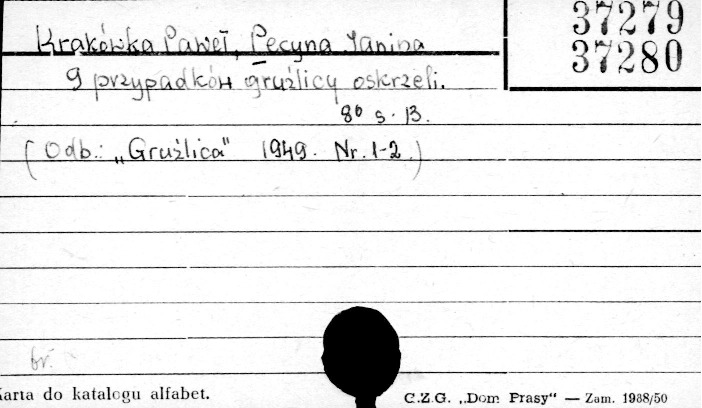 37279
37280
Krakówka Paweł, Pecyna Janina
9 przypadków gruźlicy oskrzeli.
8° s. 13.
(Odb.: „Gruźlica" 1949. Nr. 1-2.)
br.
Karta do katalogu alfabet.
C.Z.G. „Dom Prasy" — Zam. 1938/50